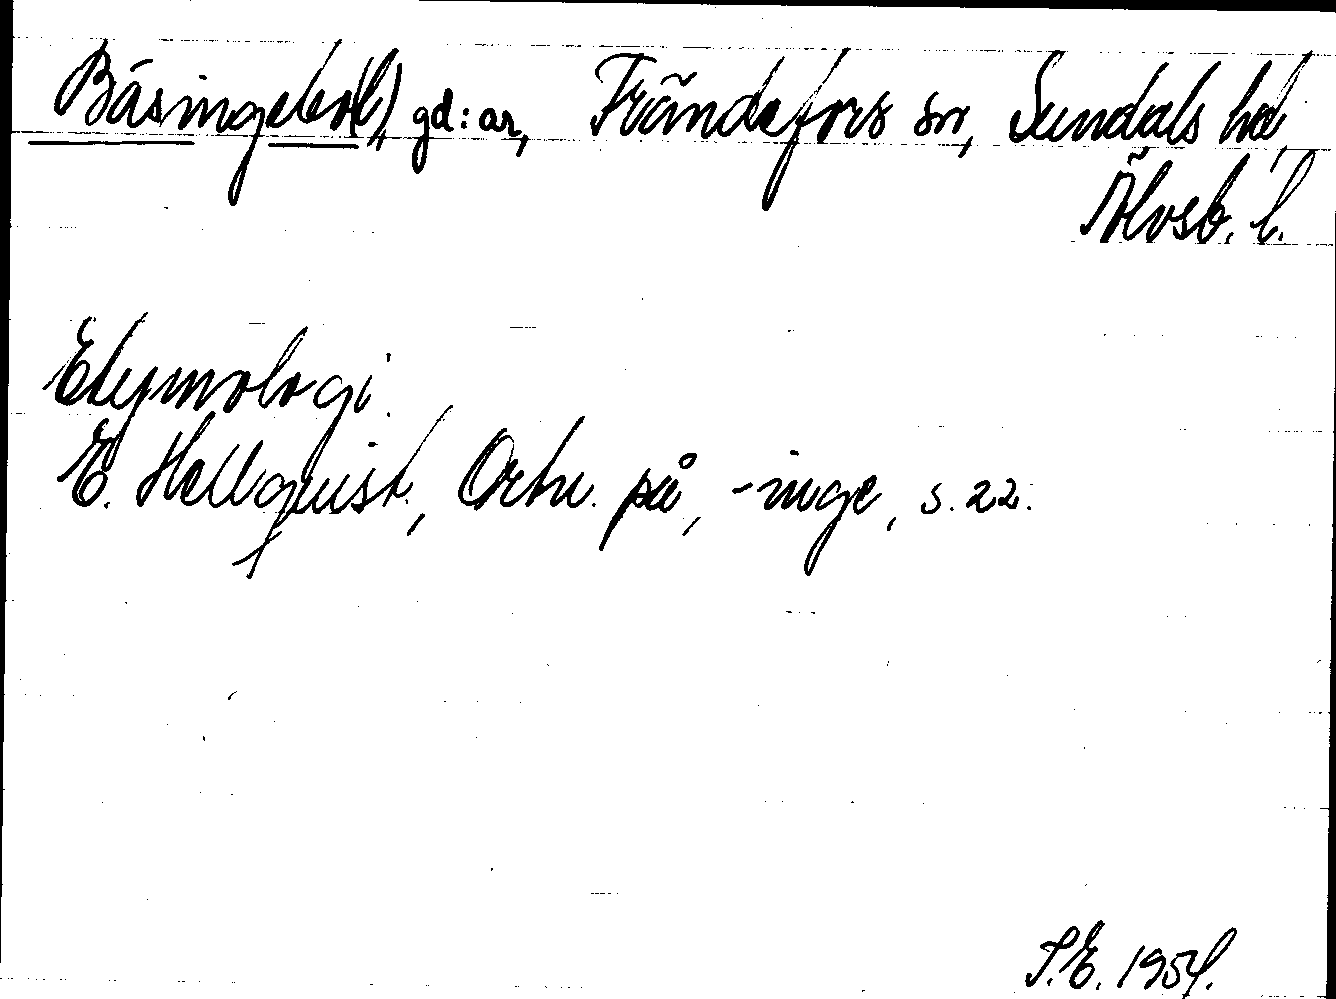 Bäsingebo(l), gd:ar, Frändefors sn, Sundals hd,
Älvsb. l.
Etymologi.
E. Hellquist, Ortn. på, -inge, s. 22.
S.E. 1954.